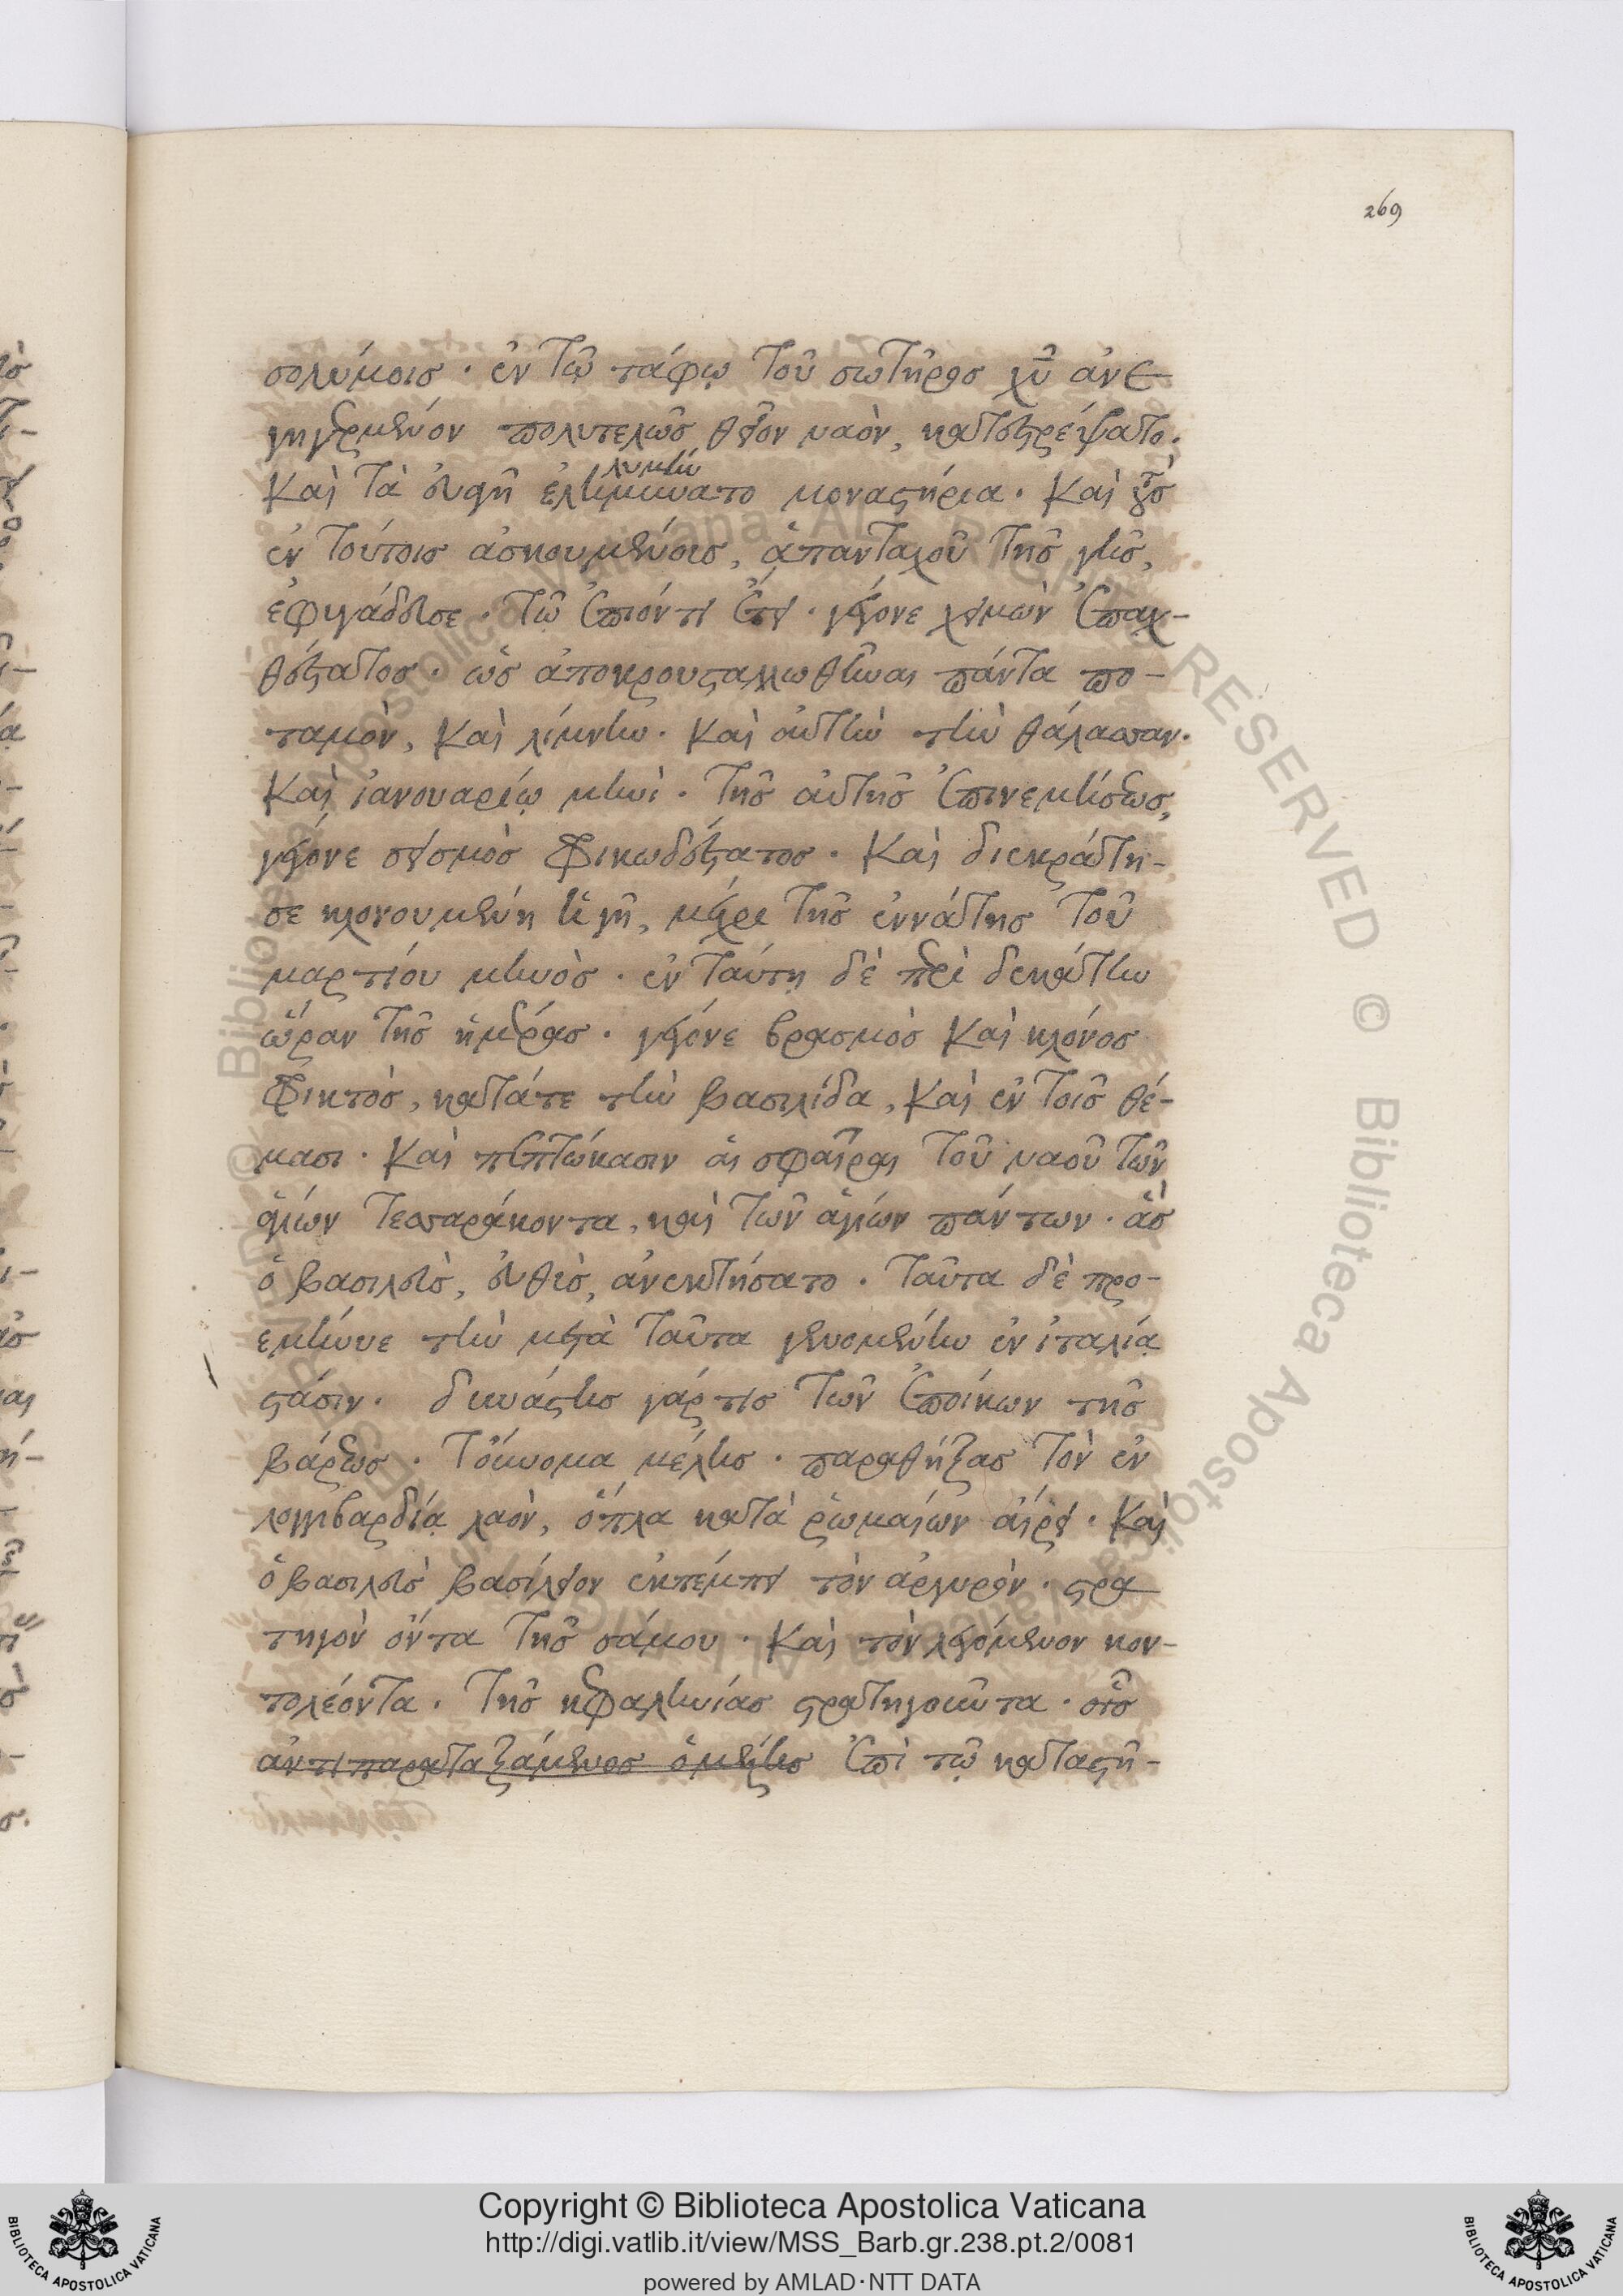 269
σολύμοις· ἐν τῷ τάφῳ τοῦ σωτῆρος χῦ ἀνε
γηγερμένον πολυτελῶς θεῖον ναὸν, κατεστρέψατο.
Καὶ τὰ ἐκεῖ ἐλυμήνατο μοναστήρια. Καὶ τοὺς
ἐν τούτοις ἀσκουμένοις, ἁπανταχοῦ τῆς γῆς,
ἐφυγάδευσε. Τῶ ἐπιόντι ἔτει. γέγονε χειμὼν ἐπαχ-
θέστατος. ὡς ἀποκρουσταλλωθῆναι πάντα πο-
ταμὸν, καὶ λίμνην. καὶ αὐτὴν τὴν θάλασσαν.
Καὶ ἰανουαρίῳ μηνὶ. τῆς αὐτῆς ἐπινεμήσεως,
γέγονε σεισμὸς φρικωδέστατος. Καὶ διεκράτη-
σε κλονουμένη ἡ γῆ, μέχρι τῆς ἐννάτης τοῦ
μαρτίου μηνὸς. ἐν ταύτῃ δὲ περὶ δεκάτην
ὥραν τῆς ἡμέρας. γέγονε βρασμὸς καὶ κλόνος
φρικτὸς, κατάτε τὴν βασιλίδα, καὶ ἐν τοῖς θέ-
μασι. Καὶ πεπτώκασιν αἱ σφαῖραι τοῦ ναοῦ τῶν
ἁγίων τεσσαράκοντα, καὶ τῶν ἁγίων πάντων. ἃς
ὁ βασιλεὺς, εὐθὺς, ἀνεκτήσατο. Ταῦτα δὲ προ-
εμήνυε τὴν μετὰ ταῦτα γενομένην ἐν ἰταλίᾳ
στάσιν. δυνάστης γάρ τις τῶν ἐποίκων τῆς
βάρεως. τοὔνομα μέλης. παραθήξας τὸν ἐν
λογγιβαρδίᾳ λαὸν, ὅπλα κατὰ ῥωμαίων αἴρει. Καὶ
ὁ βασιλεὺς βασίλειον ἐκπέμπει τὸν ἀργυρὸν. στρα
τηγὸν ὄντα τῆς σάμου. Καὶ τὸν λεγόμενον κον-
τολέοντα. τῆς κεφαληνίας στρατηγοῦντα. οἷς
ἀντιπαραταξάμενος ὁ μέλης ἐπὶ τῷ καταστῆ-
Copyright © Biblioteca Apostolica Vaticana
http://digi.vatlib.it/view/MSS_Barb.gr.238.pt.2/0081
powered by AMLAD·NTT DATA
BIBLIOTECA APOSTOLICA VATICANA
BIBLIOTECA APOSTOLICA VATICANA